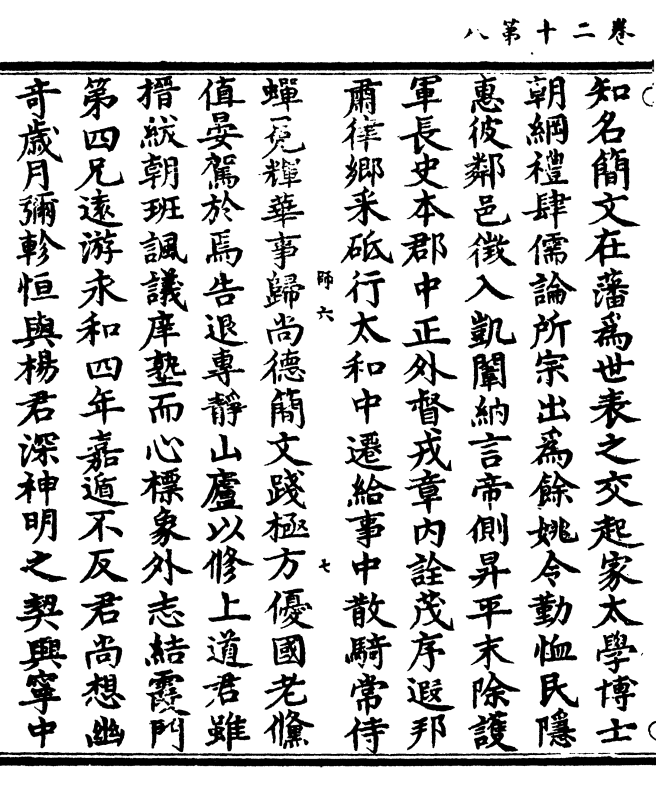 卷二十第八
知名簡文在藩為世表之交起家太學博士
朝綱禮肆儒論所宗出為餘姚令勤恤民隱
惠彼鄰邑徵入凱闈納言帝側昇平末除護
軍長史本郡中正外督戎章內詮茂序遐邦
肅律鄉采砥行太和中遷給事中散騎常侍
師六 七
蟬冕輝華事歸尚德簡文踐極方優國老儻
值晏駕於焉告退專靜山廬以修上道君雖
搢紱朝班諷議庠塾而心標象外志結霞門
第四兄遠游永和四年嘉遁不反君尚想幽
奇歲月彌軫恒與楊君深神明之契興寧中